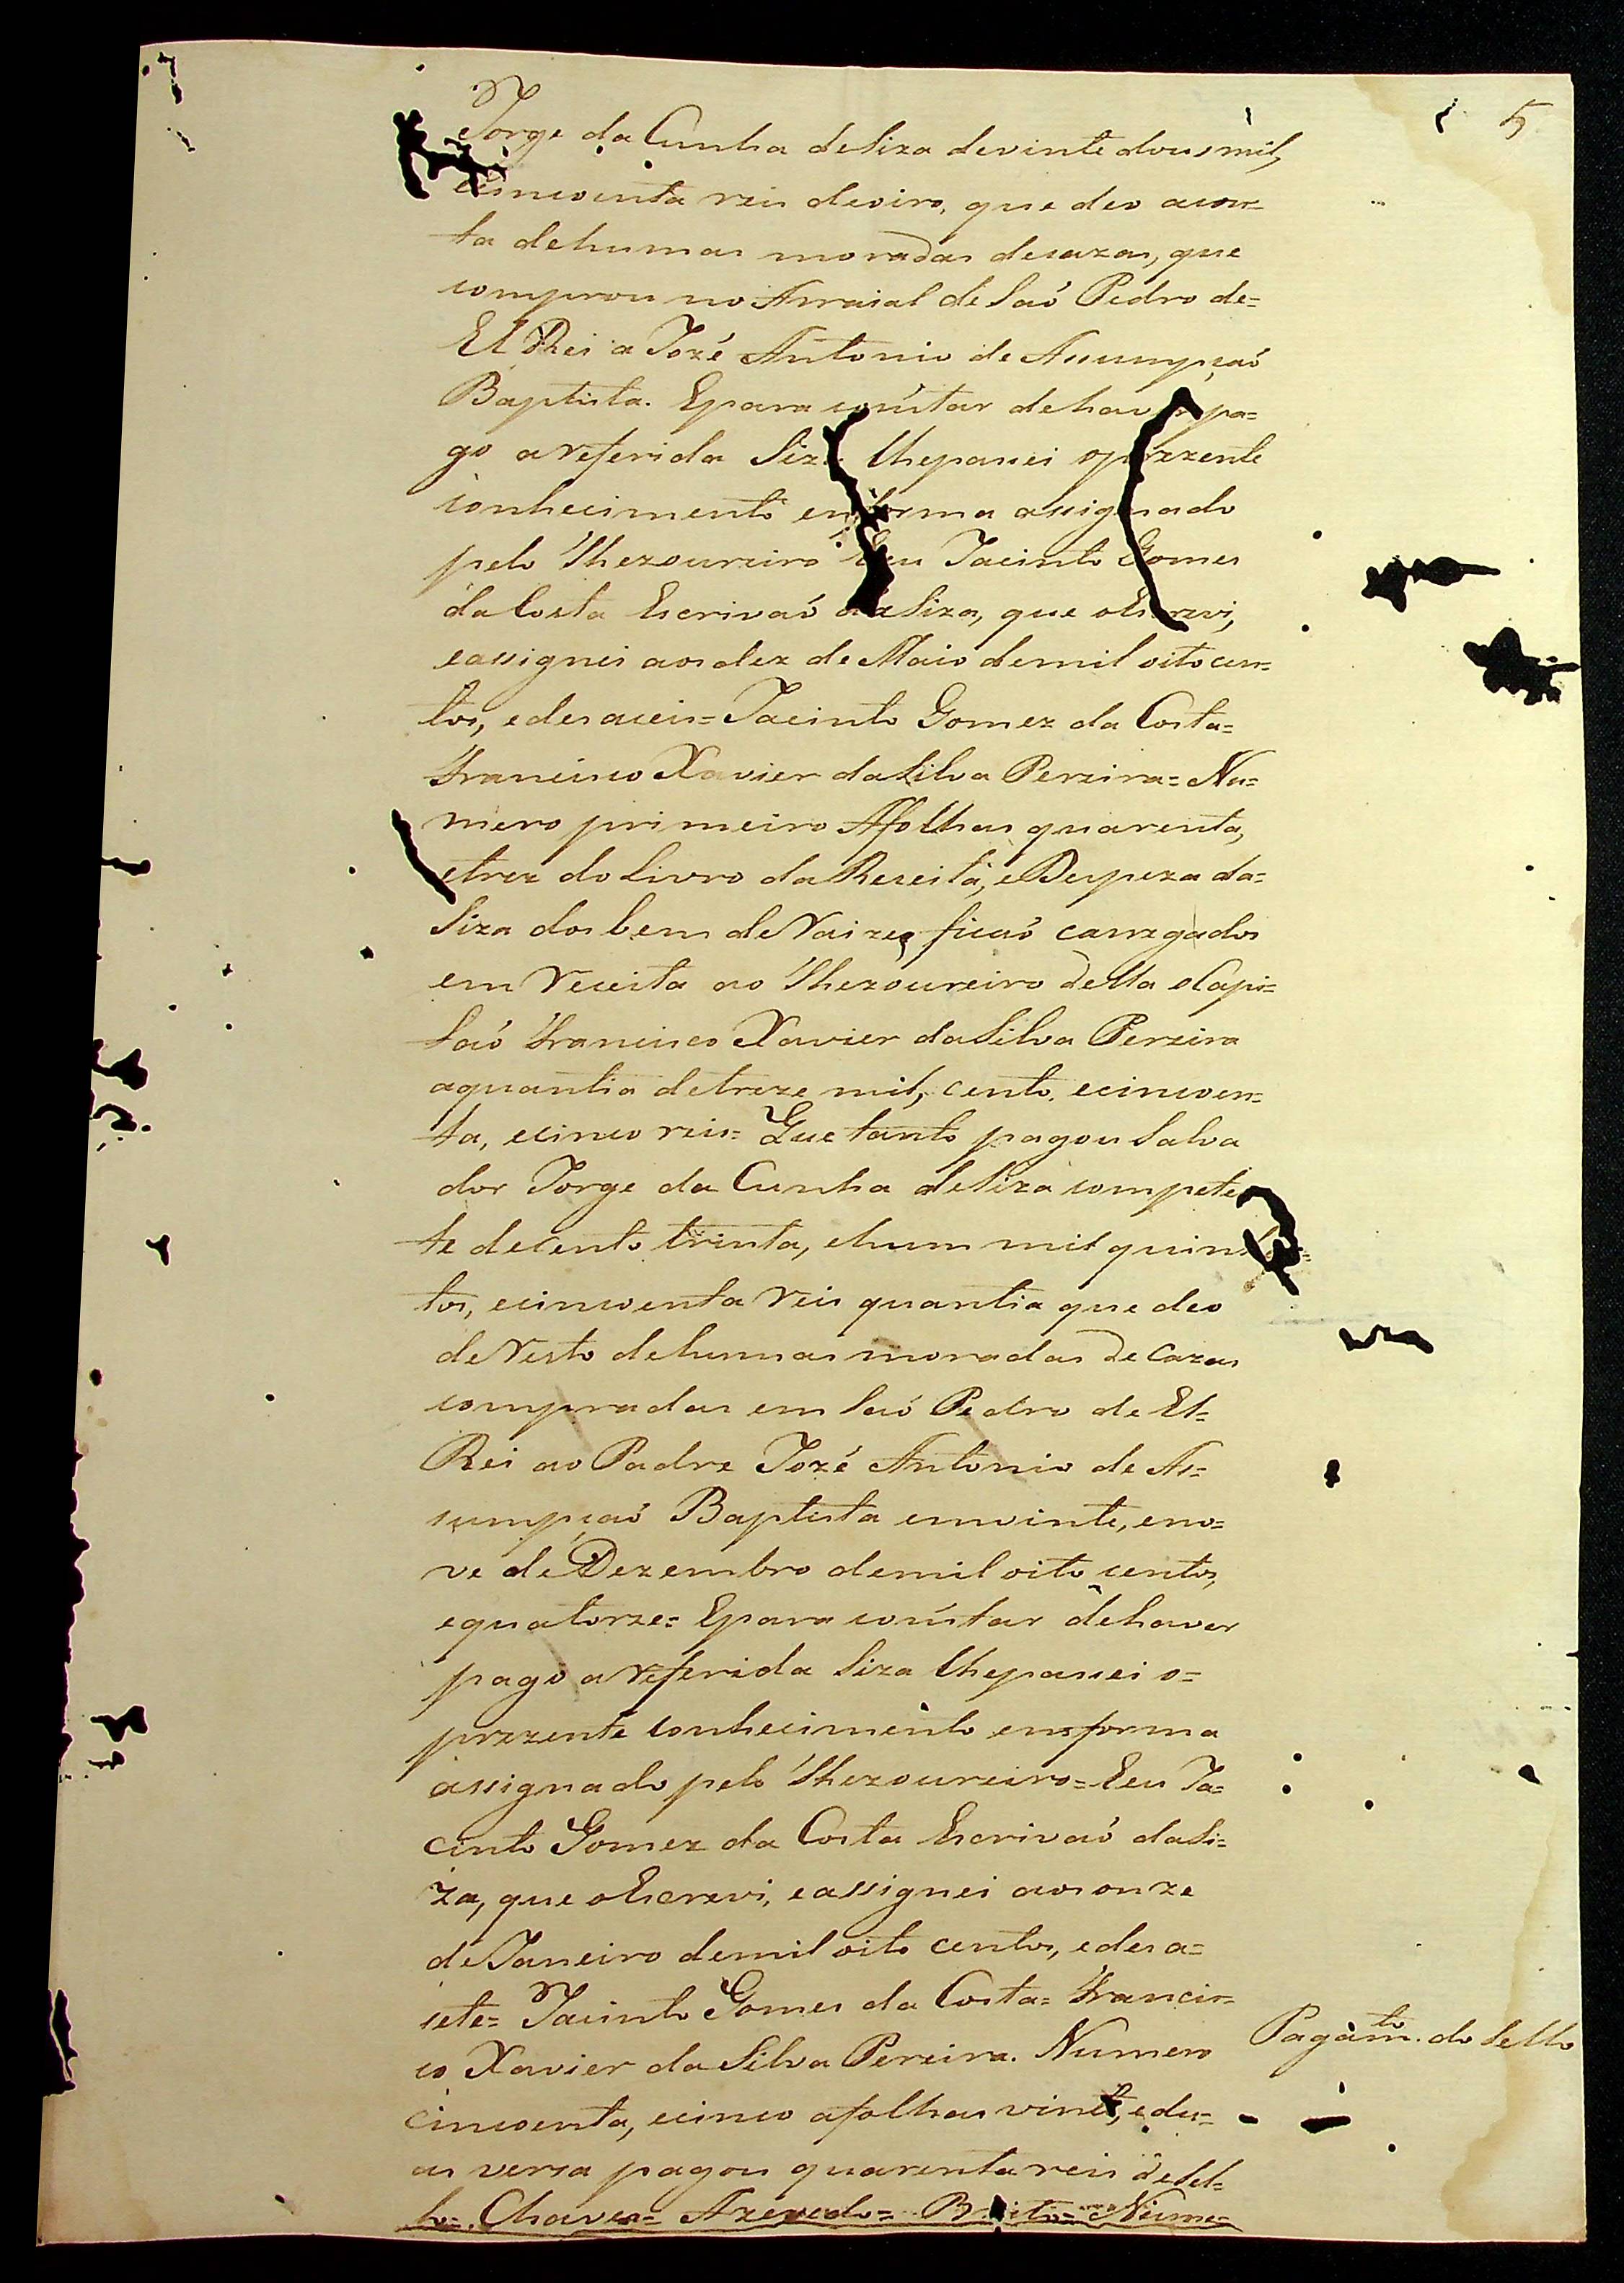 5
Jorge da Cunha de Siza de vinte dous mil,
e cincoenta reis de oiro, que deo a con=
ta de humas moradas de cazas, que
comprou no Arraial de Saõ Pedro de=
El Rei a Jozé Antonio de Assumpçaõ
Baptista. E para cõnstar de haver pa=
go a referida Siza lhe passei o prezente
conhecimento em forma assignado
pelo Thezoureiro Eeu Jacinto Gomes
da Costa Escrivaõ da Siza, que o escrevi,
e assignei aos dez de Maio de mil oito cen=
tos, e deraceis= Jacinto Gomez da Costa=
Francisco Xavier da Silva Pereira= Nu=
mero primeiro A folhas quarenta,
e trez do Livro da Receita, e Despeza da=
Siza dos bens de Raizes ficaõ carregados
em receita ao Thezoureiro della o Capi=
taõ Francisco Xavier da Silva Pereira
a quantia de treze mil, cento, e cincoen=
ta, e cinco reis= Que tanto pagou Salva
dor Jorge da Cunha de Siza competen
te de cento trinta, e hum mil quinhen=
tos, e cincoenta reis quantia que deo
de resto de humas moradas de cazas
compradas em Saõ Pedro de El=
Rei ao Padre Jozé Antonio de As=
sumpçaõ Baptista em vinte, e no=
ve de Dezembro de mil oito centos,
e quatorze= E para cõnstar de haver
pago a referida Siza lhe passei o=
prezente conhecimento em forma
assignado pelo Thezoureiro= Eeu Ja=
cinto Gomez da Costa Escrivaõ da Si=
za, que o escrevi, e assignei aos onze
de Janeiro de mil oito centos, e desa=
sete= Jacinto Gomes da Costa= Francis=
co Xavier da Silva Pereira. Numero
Pagam.to do Sello
cincoenta, e cinco a folhas vinte, e du=
as versa pagou quarenta reis de Sel=
lo= Chaves= Azevedo= Brito= Nume=